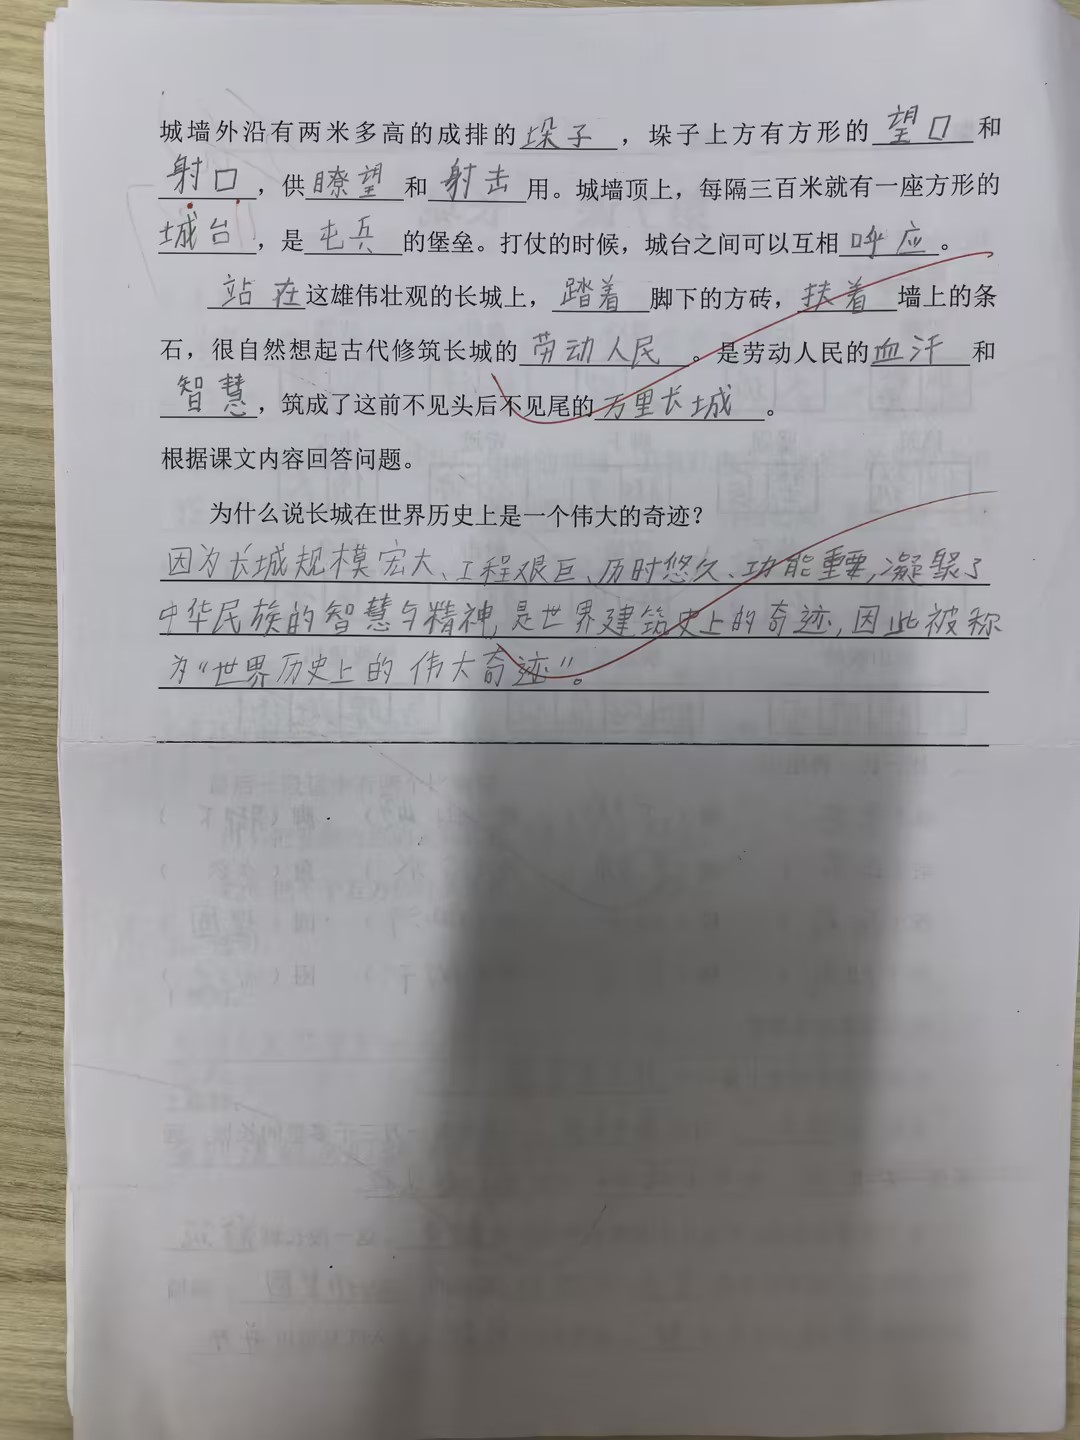 城墙外沿有两米多高的成排的垛子，垛子上方有方形的望口和
射口，供瞭望和射击用。城墙顶上，每隔三百米就有一座方形的
城台，是屯兵的堡垒。打仗的时候，城台之间可以互相呼应。
站在这雄伟壮观的长城上，踏着脚下的方砖，扶着墙上的条
石，很自然想起古代修筑长城的劳动人民。是劳动人民的血汗和
智慧，筑成了这前不见头后不见尾的万里长城。
根据课文内容回答问题。
为什么说长城在世界历史上是一个伟大的奇迹？
因为长城规模宏大、工程艰巨、历时悠久、功能重要，凝聚了
中华民族的智慧与精神，是世界建筑史上的奇迹，因此被称
为“世界历史上的伟大奇迹”。